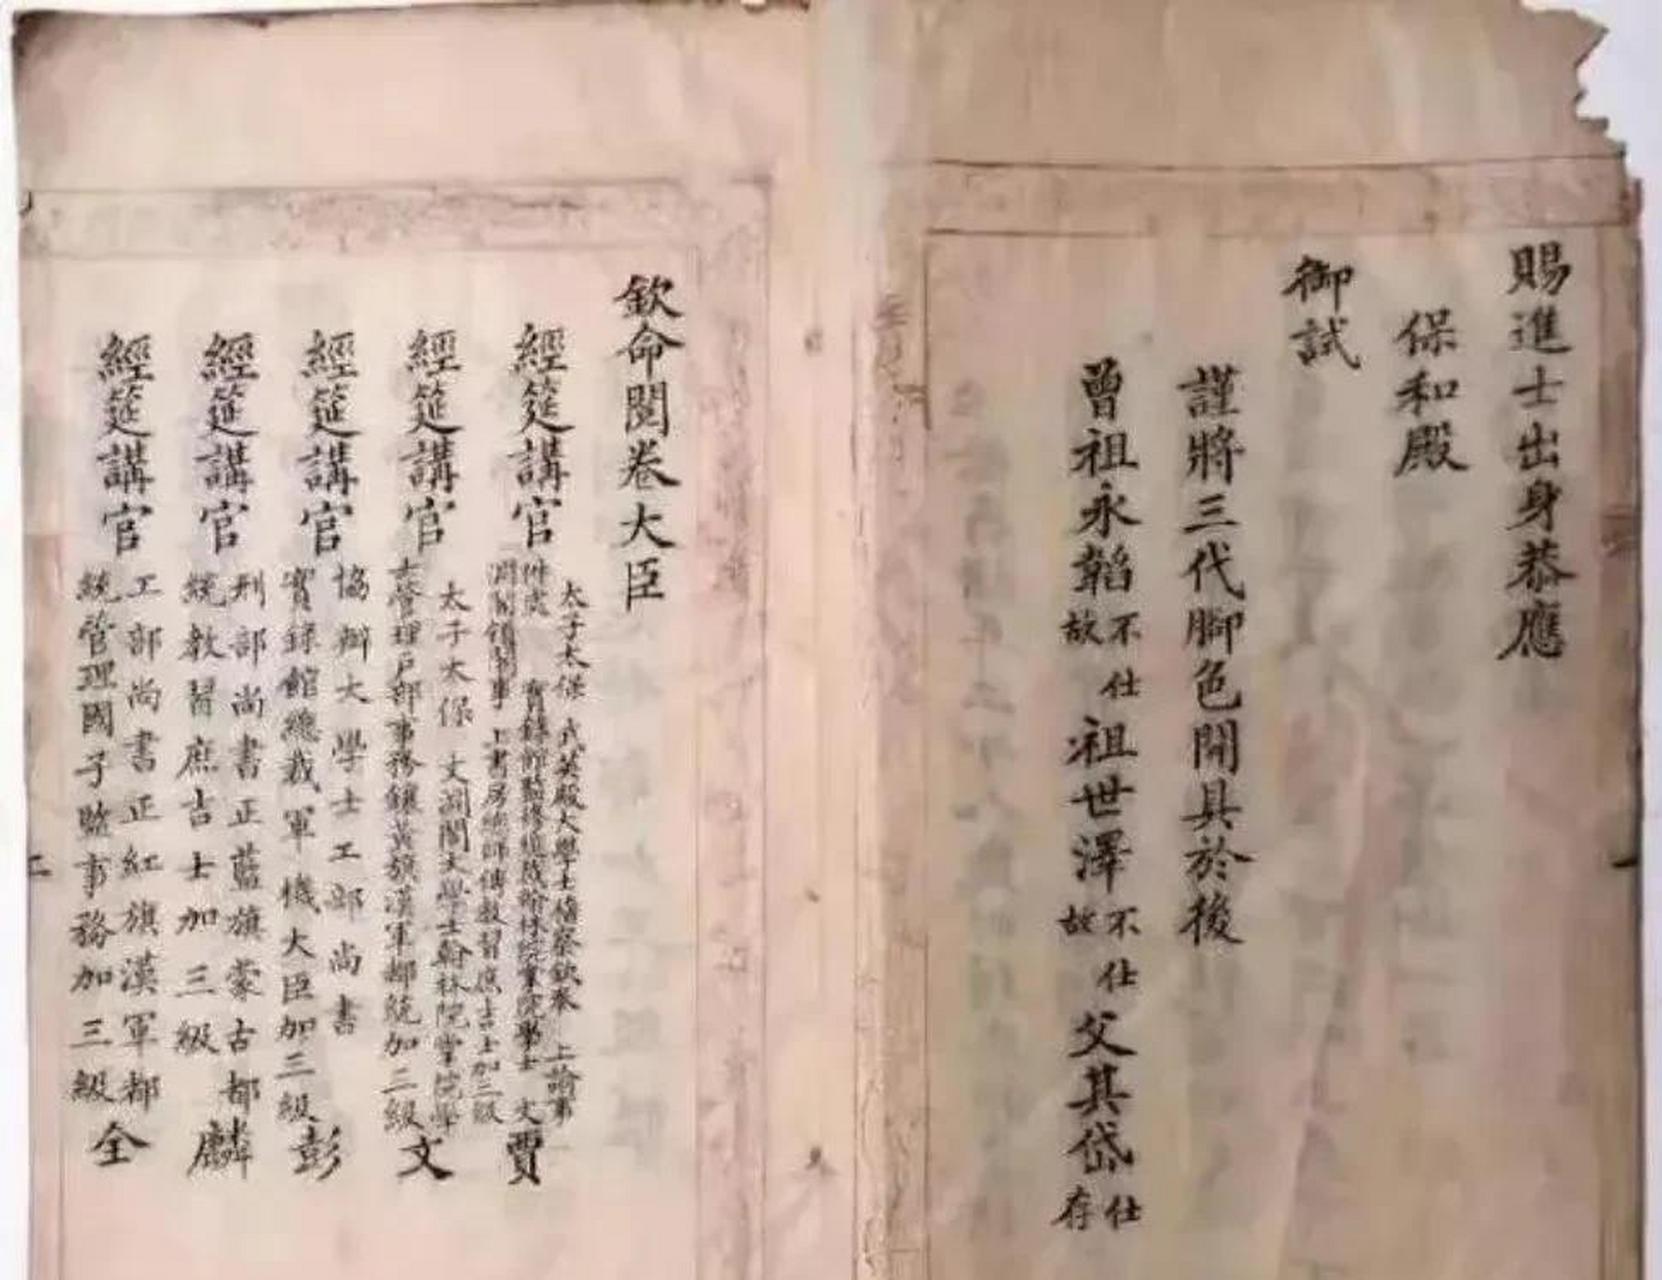 賜進士出身恭應
保和殿
御試
謹將三代腳色開具於後
曾祖永韜不仕故 祖世澤不仕故 父其岱仕存
欽命閱卷大臣
經筵講官 太子太保 武英殿大學士稽察欽奉 上諭事件處 實錄館監修總裁翰林院掌院學士 文淵閣領閣事 上書房總師傅教習庶吉士加三級 賈
經筵講官 太子太保 文淵閣大學士翰林院掌院學士管理戶部事務鑲黃旗漢軍都統加二級 文
經筵講官 協辦大學士工部尚書實錄館總裁軍機大臣加三級 彭
經筵講官 刑部尚書正藍旗蒙古都統教習庶吉士加三級 麟
經筵講官 工部尚書正紅旗漢軍都統管理國子監事務加三級 全